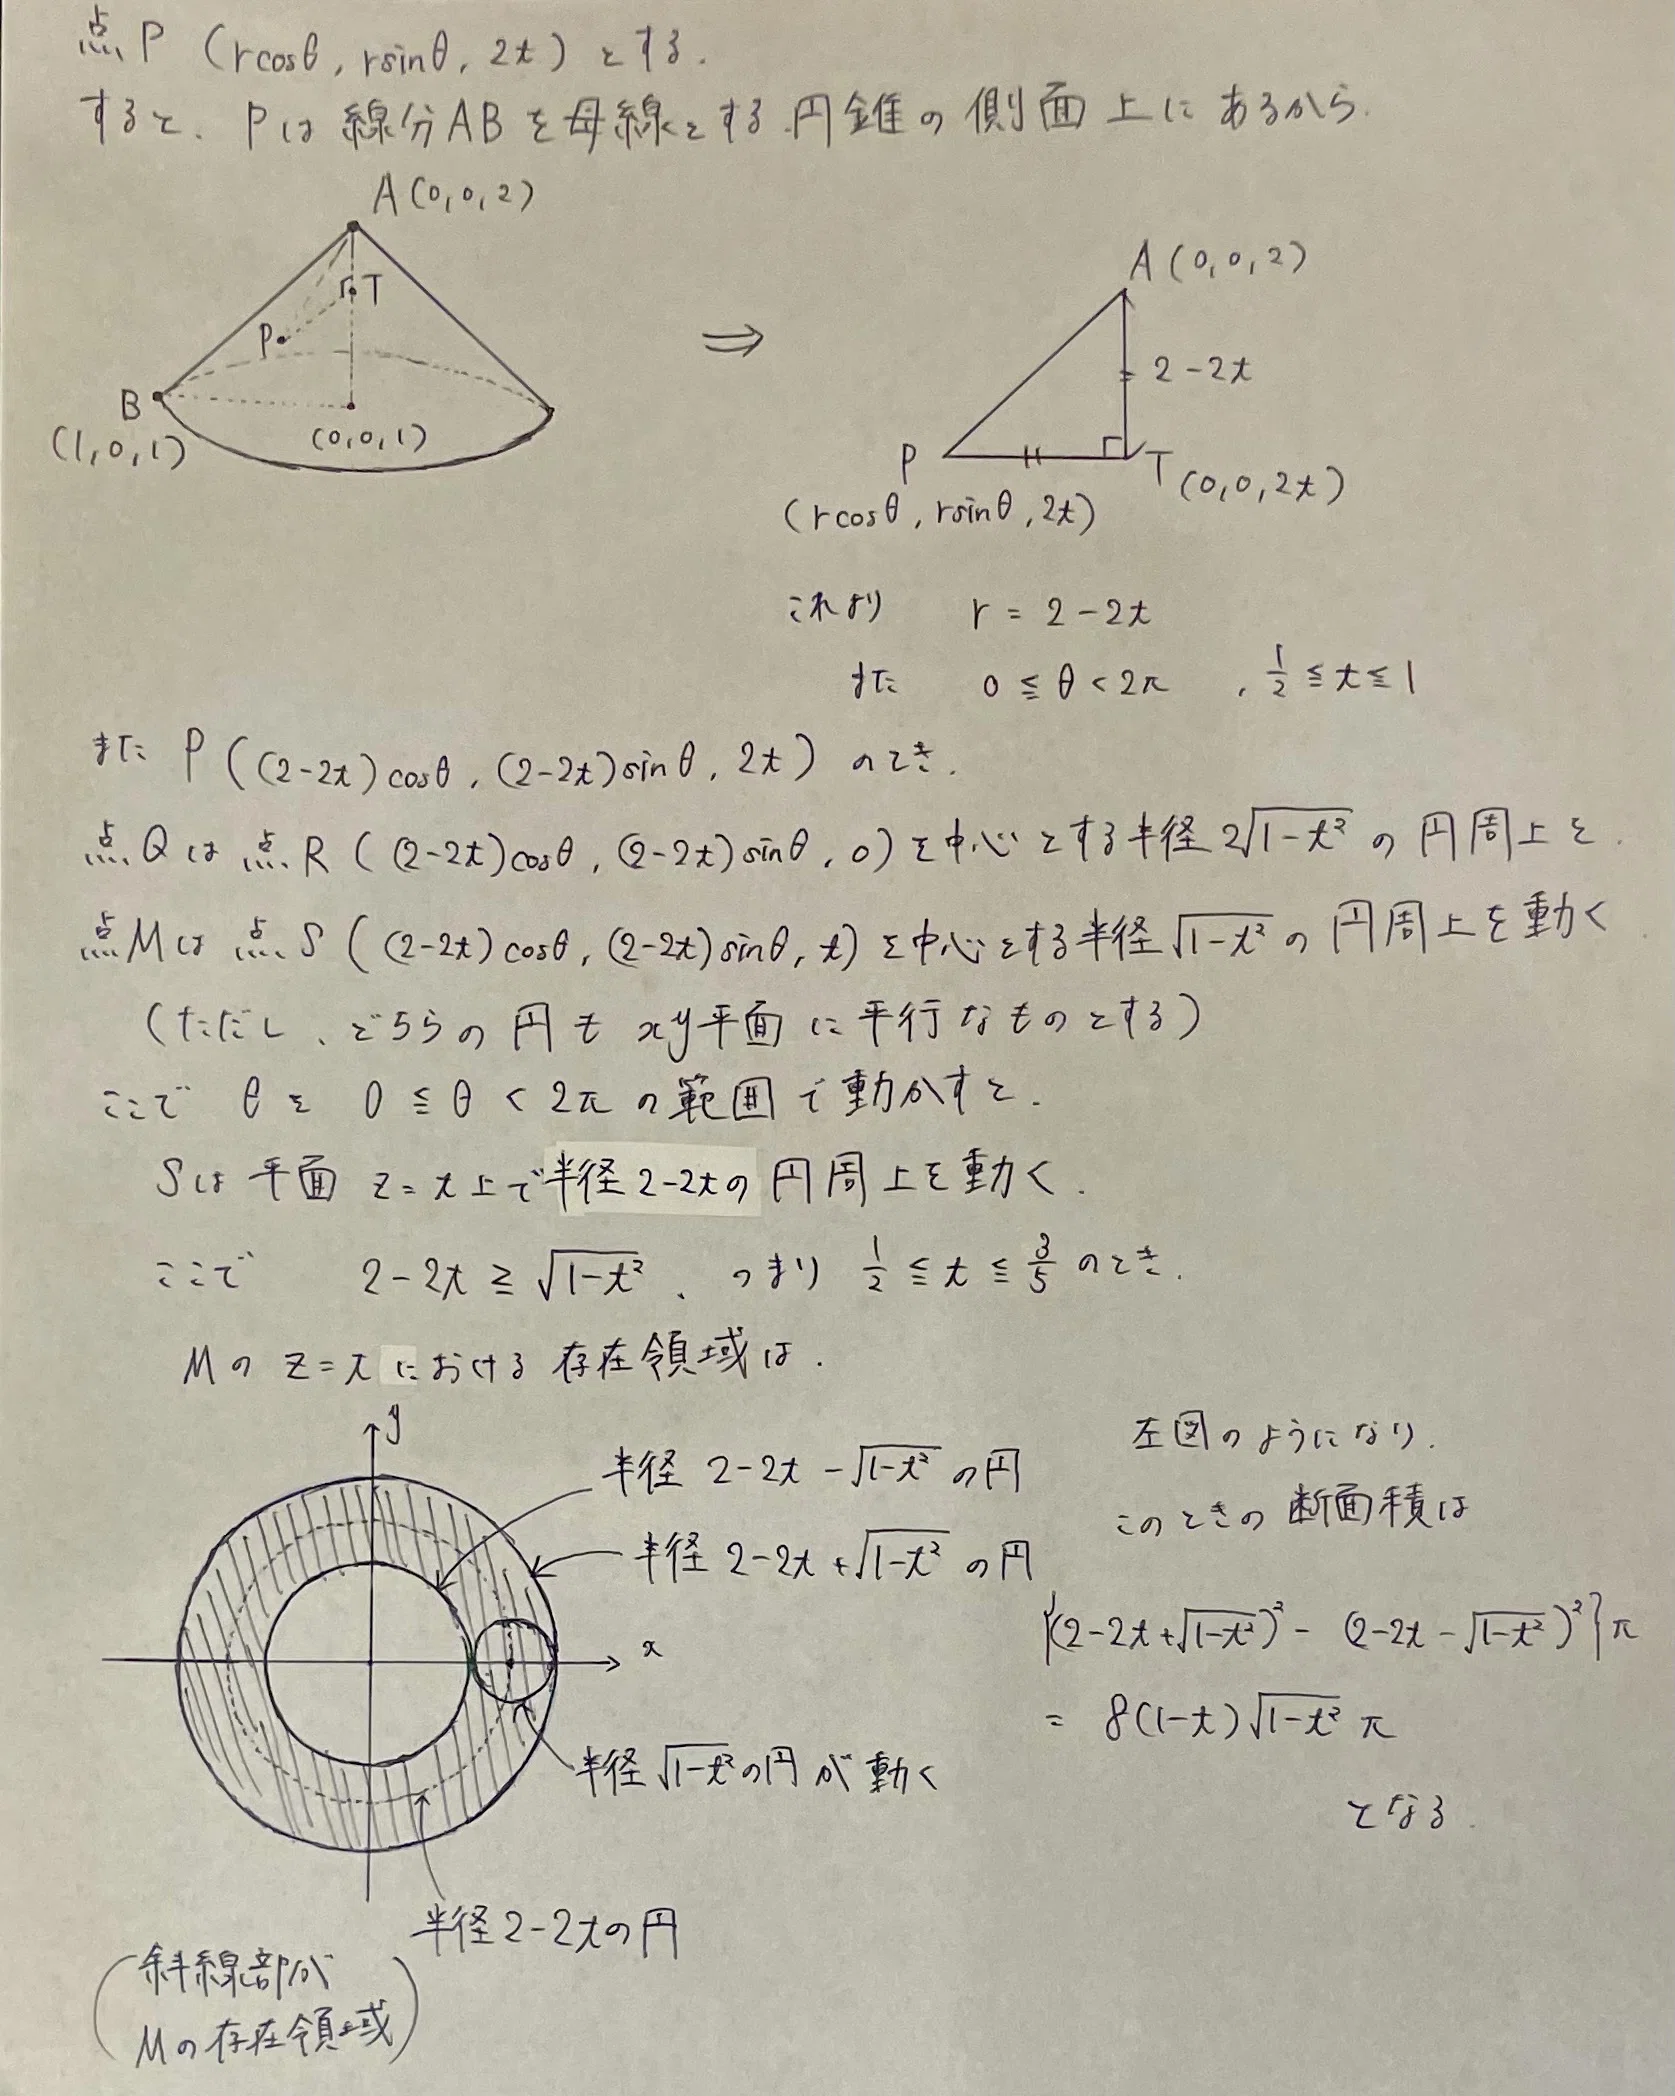 点P (rcosθ, rsinθ, 2t) とする.
すると、Pは線分ABを母線とする円錐の側面上にあるから.
A(0,0,2)
T
P
B
(1,0,1)
(0,0,1)
⇒
A(0,0,2)
2-2t
P
T(0,0,2t)
(rcosθ, rsinθ, 2t)
これより r = 2-2t
また 0≦θ<2π , 1/2≦t≦1
また P((2-2t)cosθ, (2-2t)sinθ, 2t) のとき.
点Qは点R((2-2t)cosθ, (2-2t)sinθ, 0)を中心とする半径2√(1-t²)の円周上を.
点Mは点S((2-2t)cosθ, (2-2t)sinθ, t)を中心とする半径√(1-t²)の円周上を動く
(ただし、どちらの円もxy平面に平行なものとする)
ここでθを 0≦θ<2πの範囲で動かすと.
Sは平面 z=t上で半径2-2tの円周上を動く.
ここで 2-2t≧√(1-t²)、つまり 1/2≦t≦3/5 のとき.
Mの z=tにおける存在領域は.
y
半径 2-2t-√(1-t²) の円
半径 2-2t+√(1-t²) の円
x
半径√(1-t²)の円が動く
半径2-2tの円
(斜線部が
Mの存在領域)
左図のようになり.
このときの断面積は
{(2-2t+√(1-t²))² - (2-2t-√(1-t²))²}π
= 8(1-t)√(1-t²)π
となる.